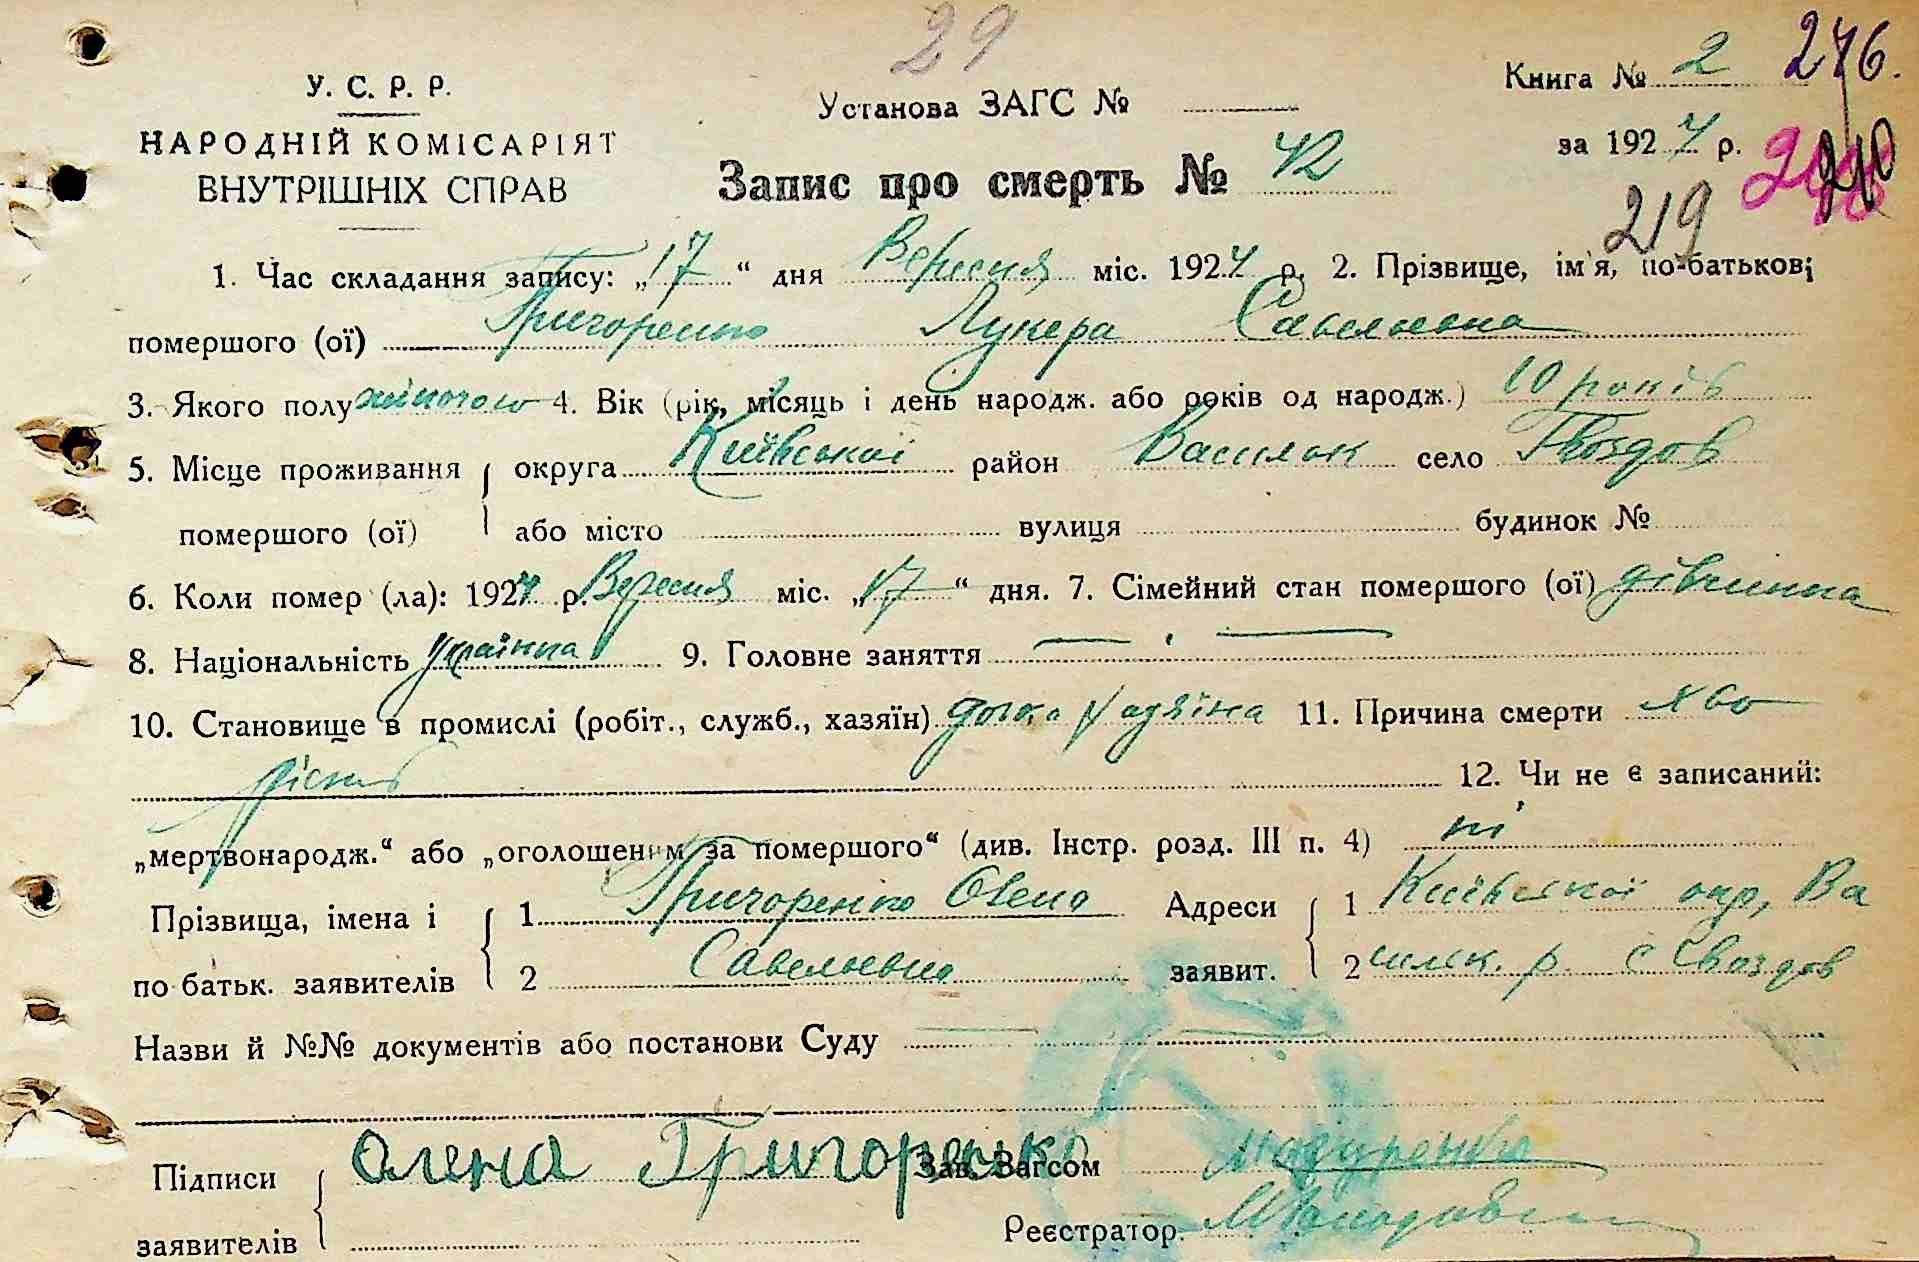 29
Книга № 2 276.
У. С. Р. Р.
Установа ЗАГС №
за 1927 р.
НАРОДНІЙ КОМІСАРІЯТ
ВНУТРІШНІХ СПРАВ
Запис про смерть № 42
219
1. Час складання запису: „17“ дня Вересня міс. 1927 р. 2. Прізвище, ім'я, по-батькові
помершого (ої) Григоренко Лукера Савельевна
3. Якого полу жіночого 4. Вік (рік, місяць і день народж. або років од народж.) 10 років
5. Місце проживання округа Київської район Василък село Гвоздов
помершого (ої) або місто вулиця будинок №
6. Коли помер (ла): 1927 р. Вересня міс. „17“ дня. 7. Сімейний стан помершого (ої) дівчинка
8. Національність українка 9. Головне заняття
10. Становище в промислі (робіт., служб., хазяїн) дочка хадзяіна 11. Причина смерти хво
рість 12. Чи не є записаний:
„мертвонародж.“ або „оголошеним за помершого“ (див. Інстр. розд. III п. 4) ні
Прізвища, імена і 1 Григоренко Олена Адреси 1 Київської окр, Ва
по батьк. заявителів 2 Савельевна заявит. 2 сильк. р. с Гвоздов
Назви й №№ документів або постанови Суду
Підписи Олена Григоренко Зав. Загсом
заявителів Реєстратор